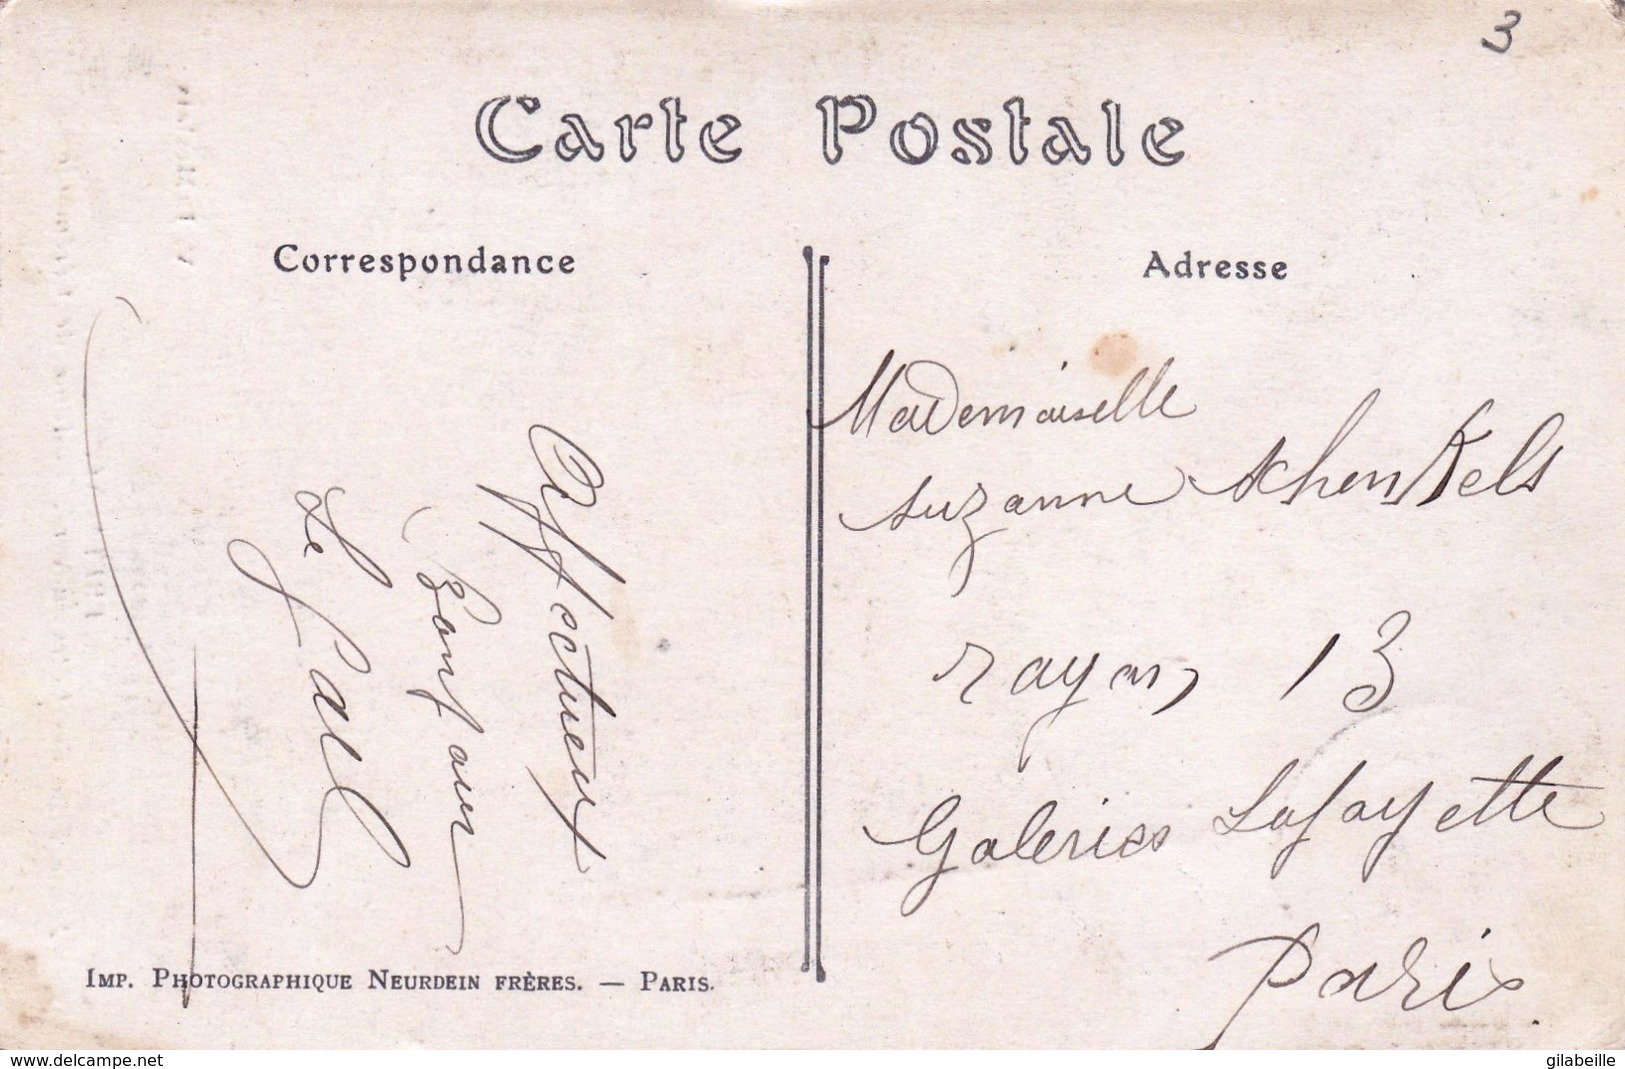 3
Carte Postale
Correspondance
Affectueux
Bonjour
Le Gall
IMP. PHOTOGRAPHIQUE NEURDEIN FRÈRES. — PARIS.
Adresse
Mademoiselle
Suzanne Schenkels
rayon 13
Galeries Lafayette
Paris
www.delcampe.net
gilabeille